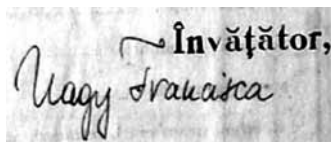 Învățător,
Nagy Francisca